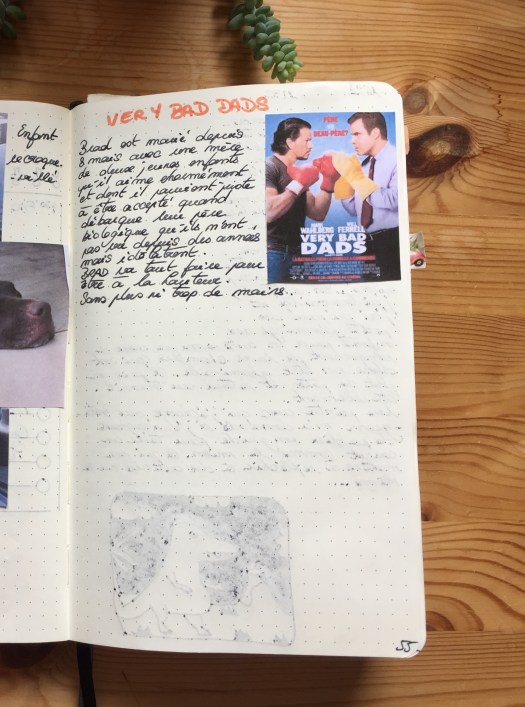 Enfant
VERY BAD DADS
Brad est marié depuis
8 mois avec une mère
de deux jeunes enfants
qu'il aime énormément
et dont il parvient juste
à être accepté quand
débarque leur père
biologique qu'ils n'ont
pas vu depuis des années
mais idolâtrent.
Brad va tout faire pour
être à la hauteur.
Sans plus ni trop de moins..
PÈRE
OU
BEAU-PÈRE?
WAHLBERG
WILL
FERRELL
VERY BAD
DADS
55